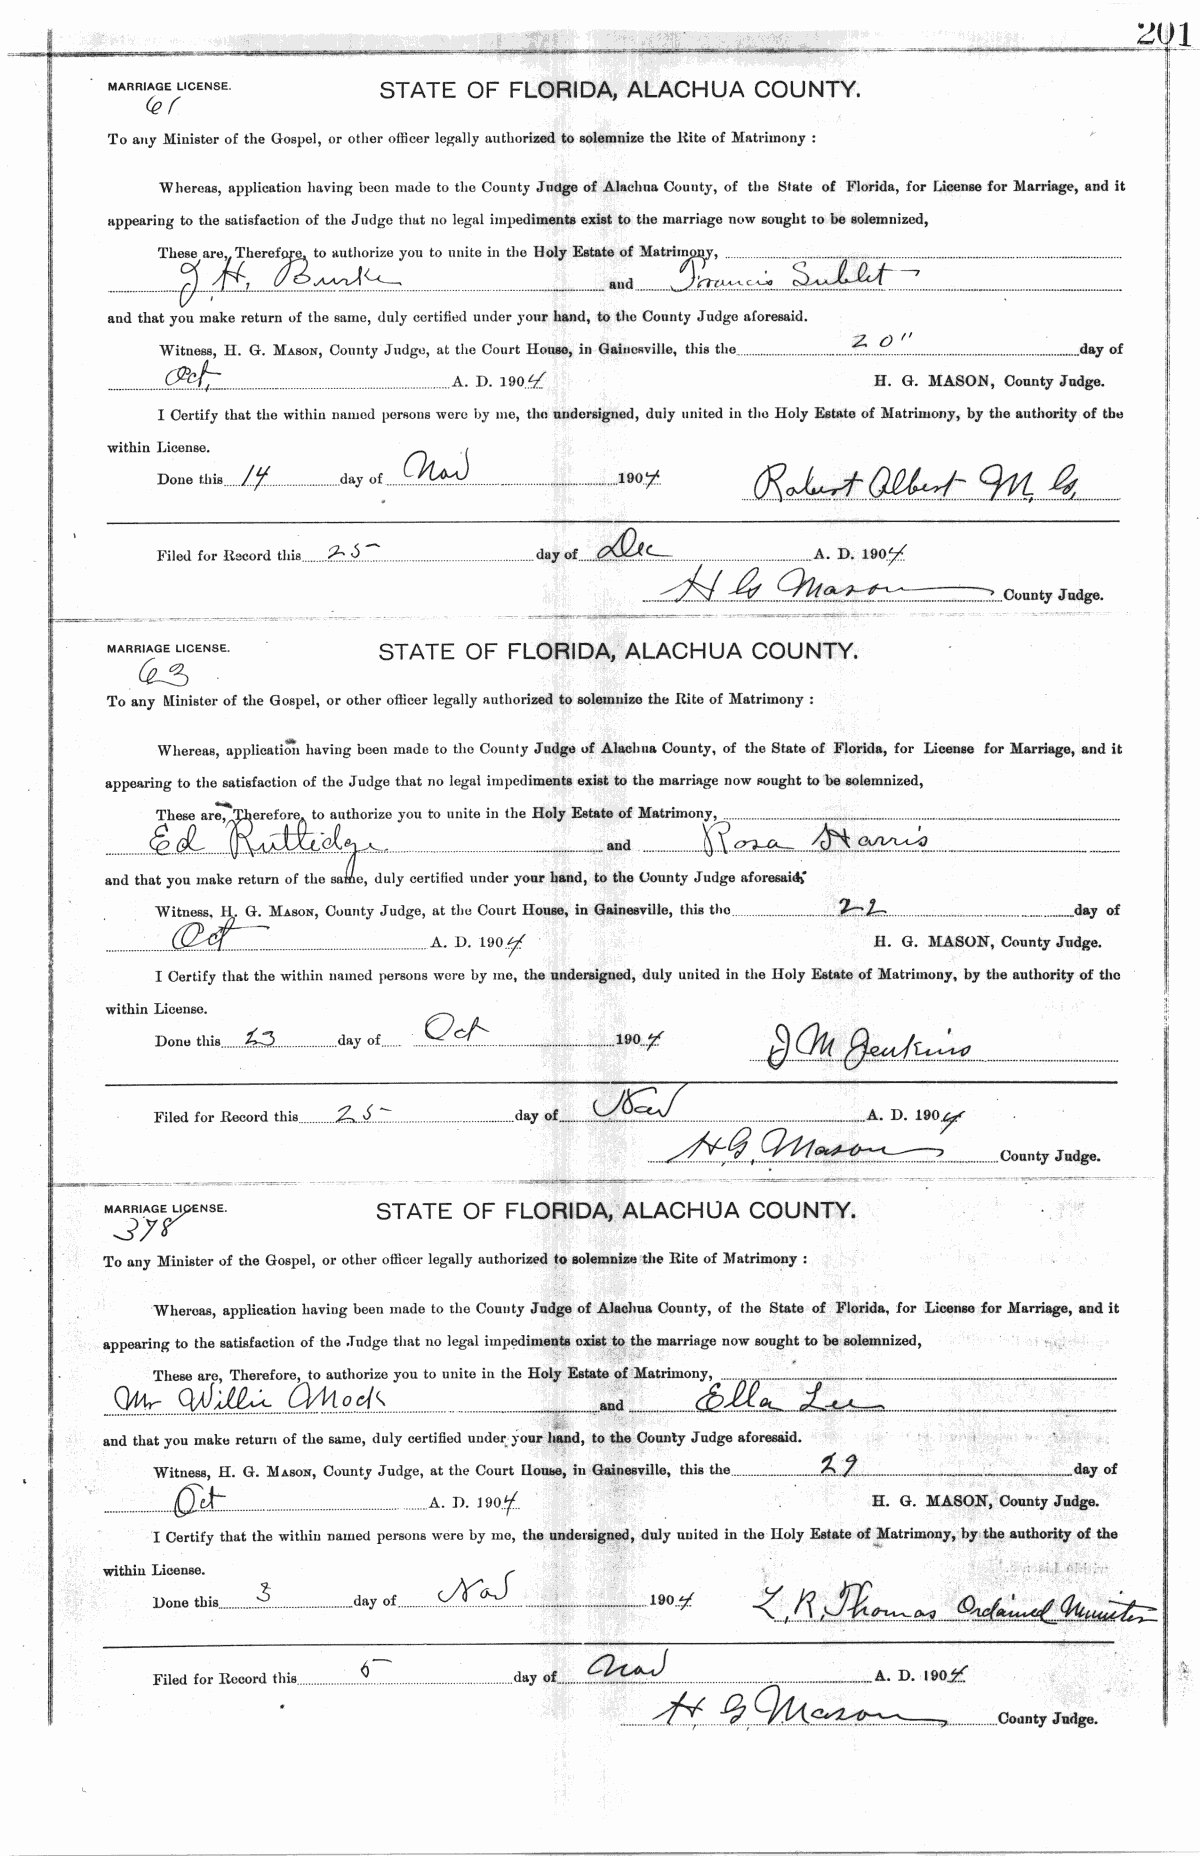 201
MARRIAGE LICENSE.
STATE OF FLORIDA, ALACHUA COUNTY.
61
To any Minister of the Gospel, or other officer legally authorized to solemnize the Rite of Matrimony :
Whereas, application having been made to the County Judge of Alachua County, of the State of Florida, for License for Marriage, and it
appearing to the satisfaction of the Judge that no legal impediments exist to the marriage now sought to be solemnized,
These are, Therefore, to authorize you to unite in the Holy Estate of Matrimony,
J H. Burke and Francis Sublet
and that you make return of the same, duly certified under your hand, to the County Judge aforesaid.
Witness, H. G. MASON, County Judge, at the Court House, in Gainesville, this the 20" day of
Oct, A. D. 1904 H. G. MASON, County Judge.
I Certify that the within named persons were by me, the undersigned, duly united in the Holy Estate of Matrimony, by the authority of the
within License.
Done this 14 day of Nov 1904 Robert Albert M. G.
Filed for Record this 25 day of Dec A. D. 1904
H G Mason County Judge.
MARRIAGE LICENSE.
STATE OF FLORIDA, ALACHUA COUNTY.
63
To any Minister of the Gospel, or other officer legally authorized to solemnize the Rite of Matrimony :
Whereas, application having been made to the County Judge of Alachua County, of the State of Florida, for License for Marriage, and it
appearing to the satisfaction of the Judge that no legal impediments exist to the marriage now sought to be solemnized,
These are, Therefore, to authorize you to unite in the Holy Estate of Matrimony,
Ed Ruttidge and Rosa Harris
and that you make return of the same, duly certified under your hand, to the County Judge aforesaid.
Witness, H. G. MASON, County Judge, at the Court House, in Gainesville, this the 22 day of
Oct A. D. 1904 H. G. MASON, County Judge.
I Certify that the within named persons were by me, the undersigned, duly united in the Holy Estate of Matrimony, by the authority of the
within License.
Done this 23 day of Oct 1904 J M Jenkins
Filed for Record this 25 day of Nov A. D. 1904
H. G. Mason County Judge.
MARRIAGE LICENSE.
STATE OF FLORIDA, ALACHUA COUNTY.
378
To any Minister of the Gospel, or other officer legally authorized to solemnize the Rite of Matrimony :
Whereas, application having been made to the County Judge of Alachua County, of the State of Florida, for License for Marriage, and it
appearing to the satisfaction of the Judge that no legal impediments exist to the marriage now sought to be solemnized,
These are, Therefore, to authorize you to unite in the Holy Estate of Matrimony,
Mr Willie Mock and Ella Lee
and that you make return of the same, duly certified under your hand, to the County Judge aforesaid.
Witness, H. G. MASON, County Judge, at the Court House, in Gainesville, this the 29 day of
Oct A. D. 1904 H. G. MASON, County Judge.
I Certify that the within named persons were by me, the undersigned, duly united in the Holy Estate of Matrimony, by the authority of the
within License.
Done this 3 day of Nov 1904 L. R. Thomas Ordained Minister
Filed for Record this 5 day of Nov A. D. 1904
H. G Mason County Judge.